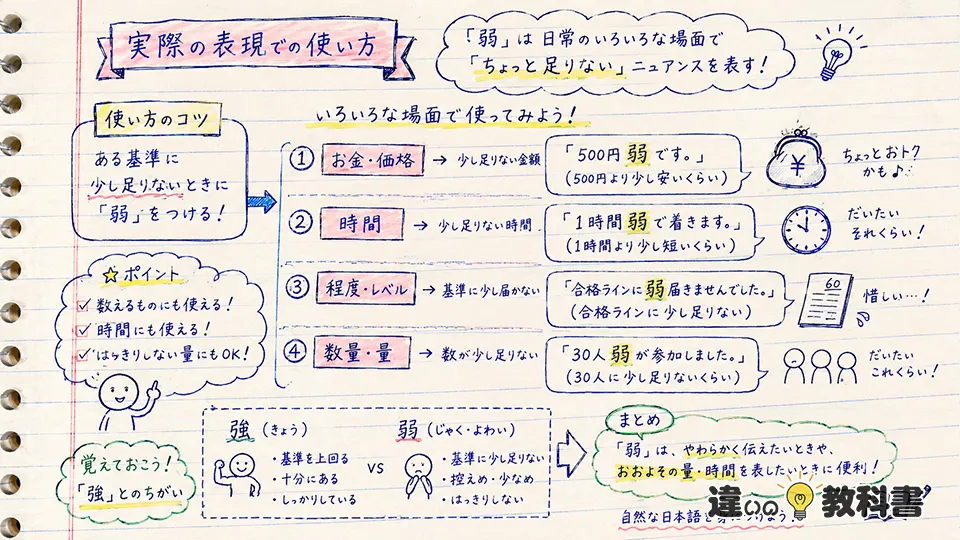 実際の表現での使い方
「弱」は日常のいろいろな場面で
「ちょっと足りない」ニュアンスを表す！
使い方のコツ
ある基準に
少し足りないときに
「弱」をつける！
いろいろな場面で使ってみよう！
① お金・価格 → 少し足りない金額
「500円弱です。」
(500円より少し安いくらい)
¥
ちょっとおトク
かも♪
② 時間 → 少し足りない時間
「1時間弱で着きます。」
(1時間より少し短いくらい)
だいたい
それくらい！
③ 程度・レベル → 基準に少し届かない
「合格ラインに弱届きませんでした。」
(合格ラインに少し足りない)
60
惜しい…！
④ 数量・量 → 数が少し足りない
「30人弱が参加しました。」
(30人に少し足りないくらい)
だいたい
これくらい！
☆ポイント
✓ 数えるものにも使える！
✓ 時間にも使える！
✓ はっきりしない量にもOK！
覚えておこう！
「強」とのちがい
強 (きょう)
・基準を上回る
・十分にある
・しっかりしている
vs
弱 (じゃく・よわい)
・基準に少し足りない
・控えめ・少なめ
・はっきりしない
まとめ
「弱」は、やわらかく伝えたいときや、
おおよその量・時間を表したいときに便利！
自然な日本語
違いの教科書